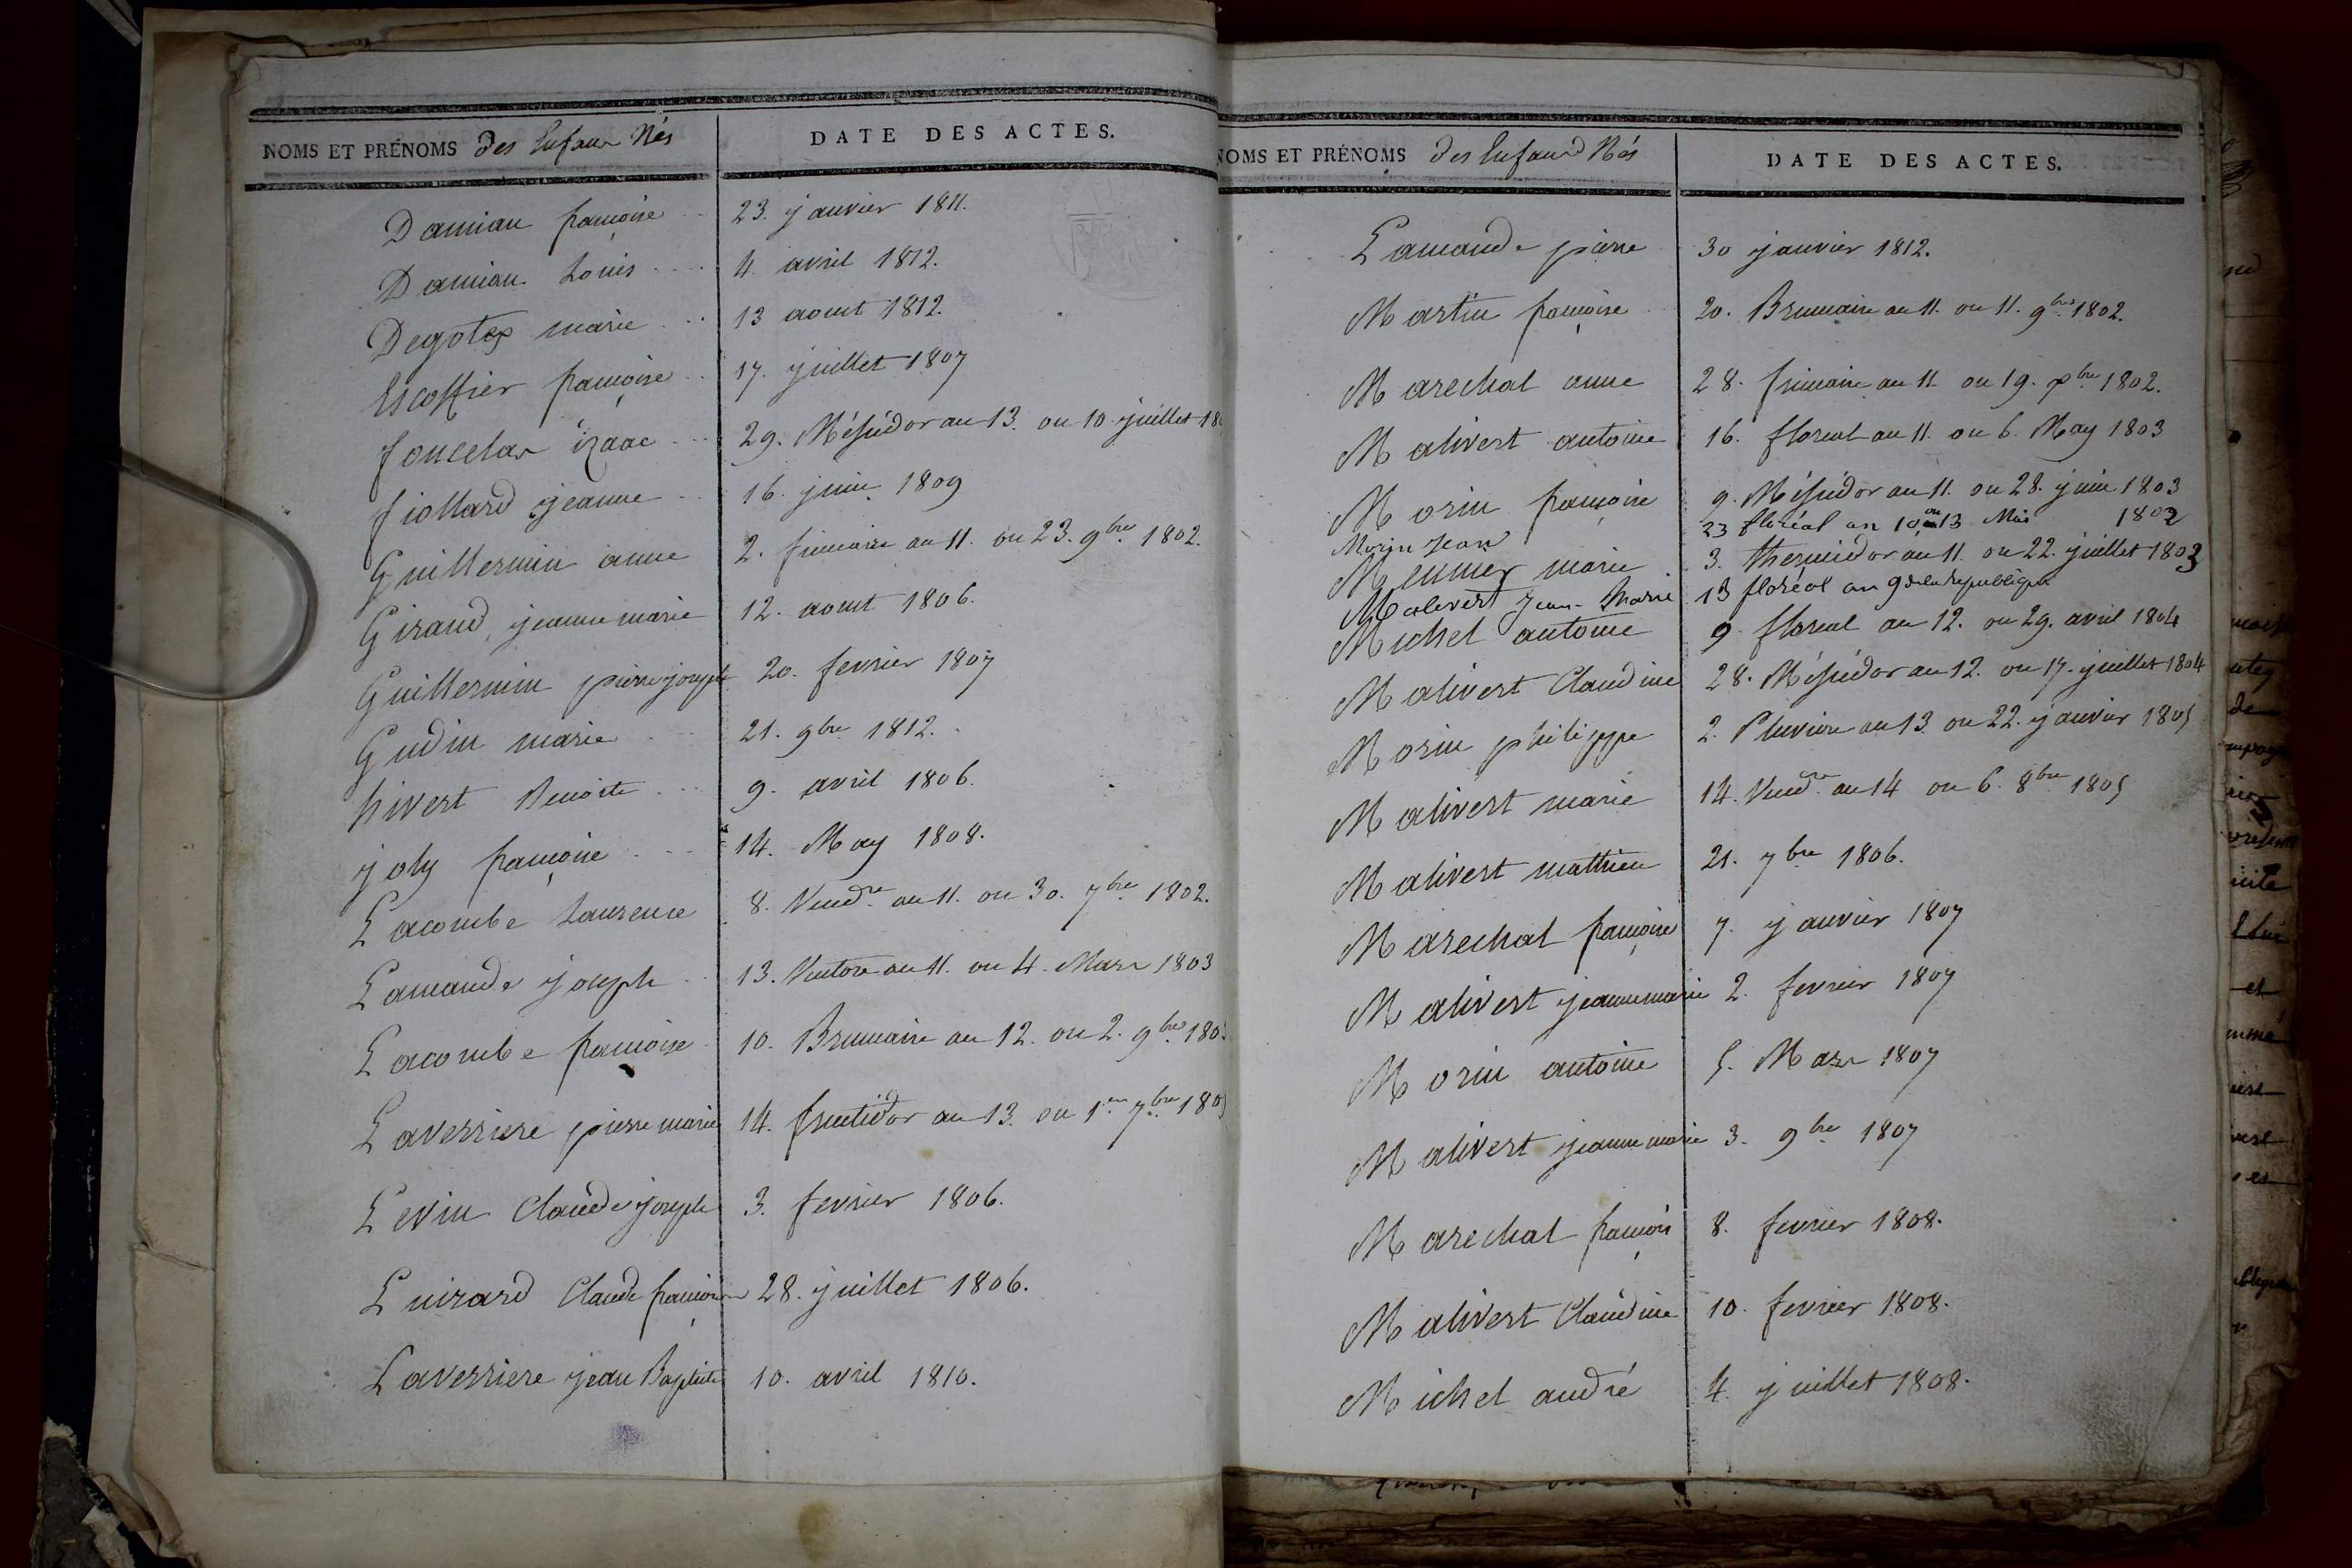 NOMS ET PRÉNOMS des Enfans Nés
DATE DES ACTES.
Damian françoise 23. janvier 1811.
Damian Louis 4. avril 1812.
Degotex marie 13 aout 1812.
Escoffier françoise 17. juillet 1807
foncelas izaac 29. Messidor an 13. ou 10 juillet 18
fiollard jeanne 16. juin 1809
Guillermin anne 2. frimaire an 11. ou 23. 9bre 1802.
Giraud jeanne marie 12. aout 1806.
Guillermin pierre joseph 20. fevrier 1807
Gudin marie 21. 9bre 1812.
hivert Benoite 9. avril 1806.
joly françoise 14. May 1808.
Lacombe Laurence 8. Vendre an 11. ou 30. 7bre 1802.
Lamande joseph 13. Ventose an 11. ou 4. Mars 1803
Lacombe françoise 10. Brumaire an 12. ou 2. 9bre 180
Laverriere pierre marie 14. fructidor an 13. ou 1er 7bre 1805
Levin Claude joseph 3. fevrier 1806.
Luirard Claude françois 28. juillet 1806.
Laverriere jean Baptiste 10. avril 1810.
NOMS ET PRÉNOMS des Enfans Nés
DATE DES ACTES.
Lamande pierre 30 janvier 1812.
Martin françoise 20. Brumaire an 11. ou 11. 9bre 1802.
Marechal anne 28. frimaire an 11. ou 19. Xbre 1802.
Malivert antoine 16. floreal an 11. ou 6. May 1803
Morin françoise 9. Messidor an 11. ou 28. juin 1803
Morin Jean 23 floréal an 10 ou 13 Mai 1802
marie 3. thermidor an 11. ou 22. juillet 1803
Malivert Jean-Marie 13 floréal an 9 de la republique
Michel antoine 9. floreal an 12. ou 29. avril 1804
Malivert Claudine 28. Messidor an 12. ou 17. juillet 1804
Morin philippe 2. Pluviose an 13. ou 22. janvier 1805
Malivert marie 14. Vendre an 14 ou 6. 8bre 1805
Malivert mathieu 21. 7bre 1806.
Marechal françoise 7. janvier 1807
Malivert jeanne marie 2. fevrier 1807
Morin antoine 5. Mars 1807
Malivert jeanne marie 3. 9bre 1807
Marechal françois 8. fevrier 1808.
Malivert Claudine 10. fevrier 1808.
Michel andré 4. juillet 1808.